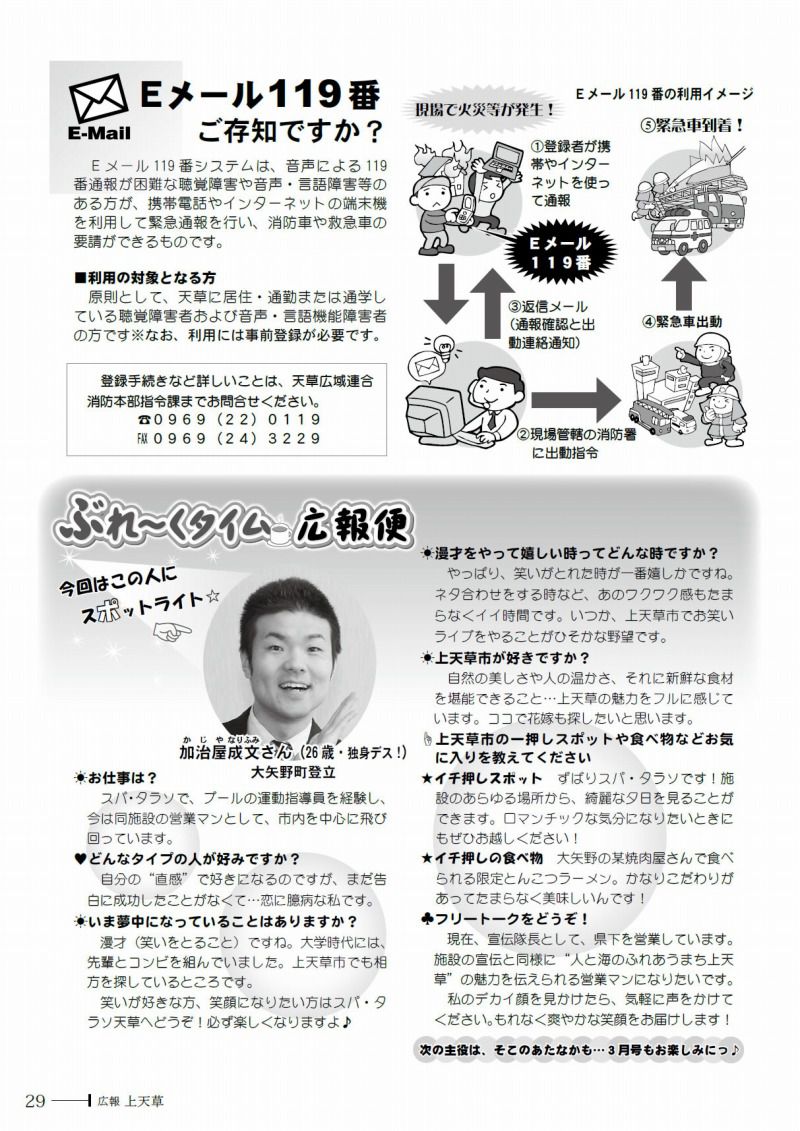 E-Mail
Eメール119番
ご存知ですか？
Eメール119番システムは、音声による119
番通報が困難な聴覚障害や音声・言語障害等の
ある方が、携帯電話やインターネットの端末機
を利用して緊急通報を行い、消防車や救急車の
要請ができるものです。
■利用の対象となる方
原則として、天草に居住・通勤または通学し
ている聴覚障害者および音声・言語機能障害者
の方です※なお、利用には事前登録が必要です。
登録手続きなど詳しいことは、天草広域連合
消防本部指令課までお問合せください。
☎0969（22）0119
FAX 0969（24）3229
Eメール119番の利用イメージ
現場で火災等が発生！
①登録者が携
帯やインター
ネットを使っ
て通報
⑤緊急車到着！
Eメール
119番
③返信メール
（通報確認と出
動連絡通知）
④緊急車出動
②現場管轄の消防署
に出動指令
ぶれ〜くタイム 広報便
今回はこの人に
スポットライト☆
加治屋成文さん（26歳・独身デス！）
かじやなりふみ
大矢野町登立
☀お仕事は？
スパ・タラソで、プールの運動指導員を経験し、
今は同施設の営業マンとして、市内を中心に飛び
回っています。
♥どんなタイプの人が好みですか？
自分の“直感”で好きになるのですが、まだ告
白に成功したことがなくて…恋に臆病な私です。
☀いま夢中になっていることはありますか？
漫才（笑いをとること）ですね。大学時代には、
先輩とコンビを組んでいました。上天草市でも相
方を探しているところです。
笑いが好きな方、笑顔になりたい方はスパ・タ
ラソ天草へどうぞ！必ず楽しくなりますよ♪
☀漫才をやって嬉しい時ってどんな時ですか？
やっぱり、笑いがとれた時が一番嬉しかですね。
ネタ合わせをする時など、あのワクワク感もたま
らなくイイ時間です。いつか、上天草市でお笑い
ライブをやることがひそかな野望です。
☀上天草市が好きですか？
自然の美しさや人の温かさ、それに新鮮な食材
を堪能できること…上天草の魅力をフルに感じて
います。ココで花嫁も探したいと思います。
☝上天草市の一押しスポットや食べ物などお気
に入りを教えてください
★イチ押しスポット　ずばりスパ・タラソです！施
設のあらゆる場所から、綺麗な夕日を見ることが
できます。ロマンチックな気分になりたいときに
もぜひお越しください！
★イチ押しの食べ物　大矢野の某焼肉屋さんで食べ
られる限定とんこつラーメン。かなりこだわりが
あってたまらなく美味しいんです！
♣フリートークをどうぞ！
現在、宣伝隊長として、県下を営業しています。
施設の宣伝と同様に“人と海のふれあうまち上天
草”の魅力を伝えられる営業マンになりたいです。
私のデカイ顔を見かけたら、気軽に声をかけて
ください。もれなく爽やかな笑顔をお届けします！
次の主役は、そこのあたなかも…3月号もお楽しみにっ♪
29 広報 上天草